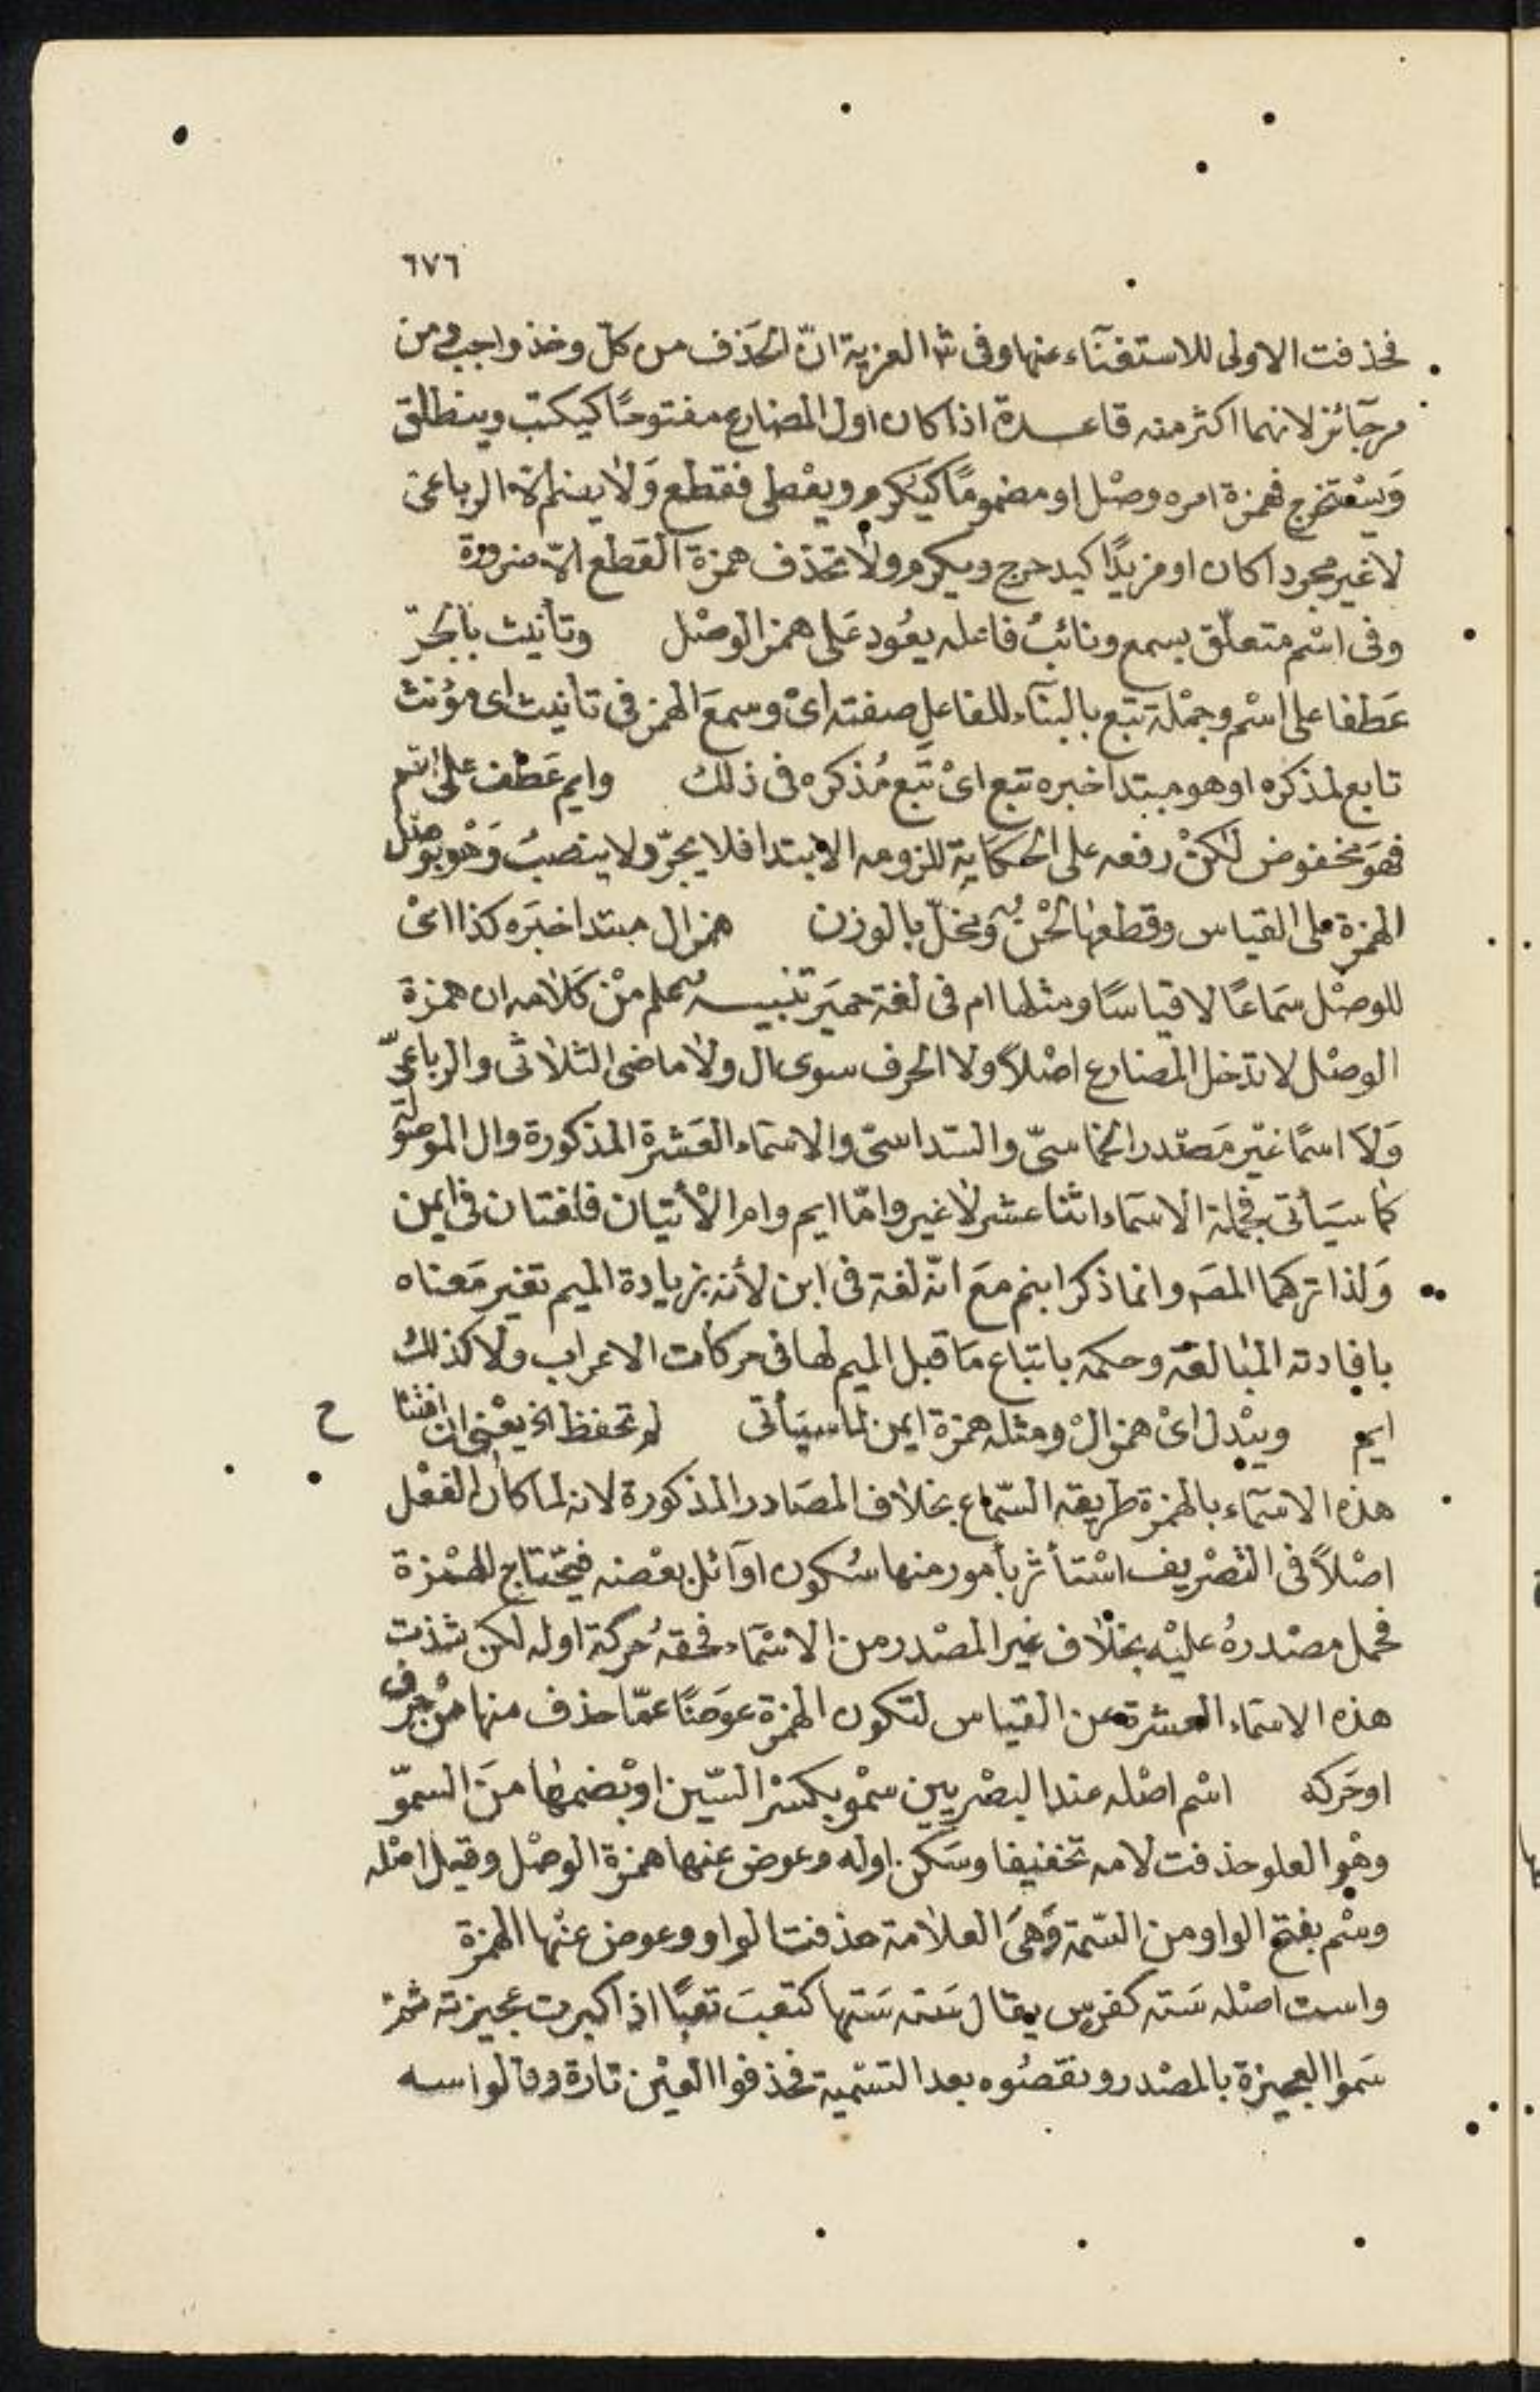 ٦٧٦
فحذفت الاولى للاستغنآء عنها وفى ش العزية انّ الحذف من كلّ وخذ واجب ومن
مر جآئز لانهما اكثر منه قاعدة اذا كان اول المضارع مفتوحًا كيكتب وينطلق
ويستخرج فهمزة امره وصْل او مضمومًا كيكرم ويعْطى فقطع وَلا يضم الا الرباعى
لا غير مجردا كان او مزيدًا كيدحرج ويكرم ولا تحذف همزة القطع الّا ضرورة
وفى اسْم متعلّق بسمع ونائبُ فاعله يعُود عَلى همز الوصْل وتأنيث بالجرّ
عَطفا على اسْم وجمْلة تبع بالبنآء للفاعل صفته اىْ وسمعَ الهمز فى تأنيث اى مؤنث
تابع لمذكره او هو مبتدا خبره تبع اىْ تَبع مُذكره فى ذلك وايم عَطْف على اسم
فهوَ مخفوض لكنْ رفعه على الحكاية للزومه الابتدا فلا يجرّ ولا ينصبُ وَهْو بوصْل
الهمزة على القياس وقطعها لحْنٌ ومخلّ بالوزن همز ال مبتدا خبَره كذا اىْ
للوصْل سَماعًا لا قياسًا ومثلها ام فى لغة حميَر تنبيه عُلم منْ كَلامه ان همزة
الوصْل لا تدْخل المضارع اصْلاً ولا الحرف سوى ال ولا ماضى الثلاثى والرباعىّ
وَلا اسمًا غيْر مَصْدر الخماسىّ والسّداسىّ والاسمَاء العَشرة المذكورة وال الموصولة
كما سيَأتى فجملة الاسمَاء اثنا عشر لا غير وامّا ايم وام الأتيان فلغتان فى ايمن
وَلذا تركهما المصَ وانما ذكر ابنم معَ انّه لغة فى ابن لأنه بزيادة الميم تغير مَعناه
بافادته المبَالغة وحكمه باتباع مَا قبل الميم لها فى حركات الاعراب ولا كذلك
ايم ويبْدل اىْ همز الْ ومثله همزة ايمن لما سيَأتى لم تحفظ الخ يعْنى ان افتتا ح
هذه الاسمآء بالهمزة طريقه السّماع بخلاف المصَادر المذكورة لانه لما كان الفعْل
اصْلاً فى التصْريف اسْتأثر بأمور منها سُكون اوَآئل بعْضه فيحْتاج للهمْزة
فحمل مصْدرهُ عليْه بخلاف غير المصْدر من الاسْمَاء فحقهُ حركة اوله لكن شذت
هذه الاسمَاء العشرة عن القياس لتكون الهمزة عوَضًا عمّا حذف منها منْ حرف
او حَركه اسْم اصْله عند البصْريين سمْو بكسْر السّين او بْضمها منَ السموّ
وهْو العلو حذفت لامه تخفيفا وسَكن اوله وعوض عنها همزة الوصْل وقيل اصْله
وسْم بفتح الواو من السّمة وَهىَ العلامة حذفت الواو وعوض عنْها الهمزة
واست اصْله سَته كفرس يقال سَته سَتها كتعبَ تعبًا اذا كبرت عجيزته ثم
سَموا العجيزة بالمصْدر ونقصُوه بعد التسْمية فحذفوا العيْن تارة وقالوا سه